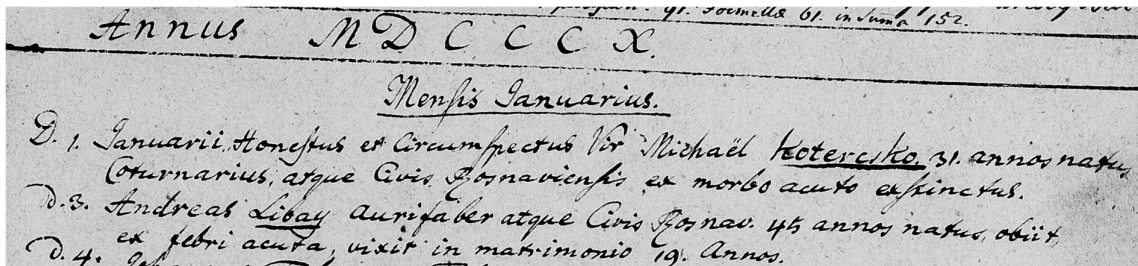 91. Foemellae 61. in Suma 152.
Annus MDCCCX.
Mensis Ianuarius.
D. 1. Ianuarii, Honestus et Circumspectus Vir Michaël Kotercsko, 31. annos natus
Coturnarius, atque Civis Rosnaviensis ex morbo acuto exstinctus.
D. 3. Andreas Libay Aurifaber atque Civis Rosnav. 45 annos natus, obiit,
ex febri acuta, vixit in matrimonio 19. Annos.
D. 4.